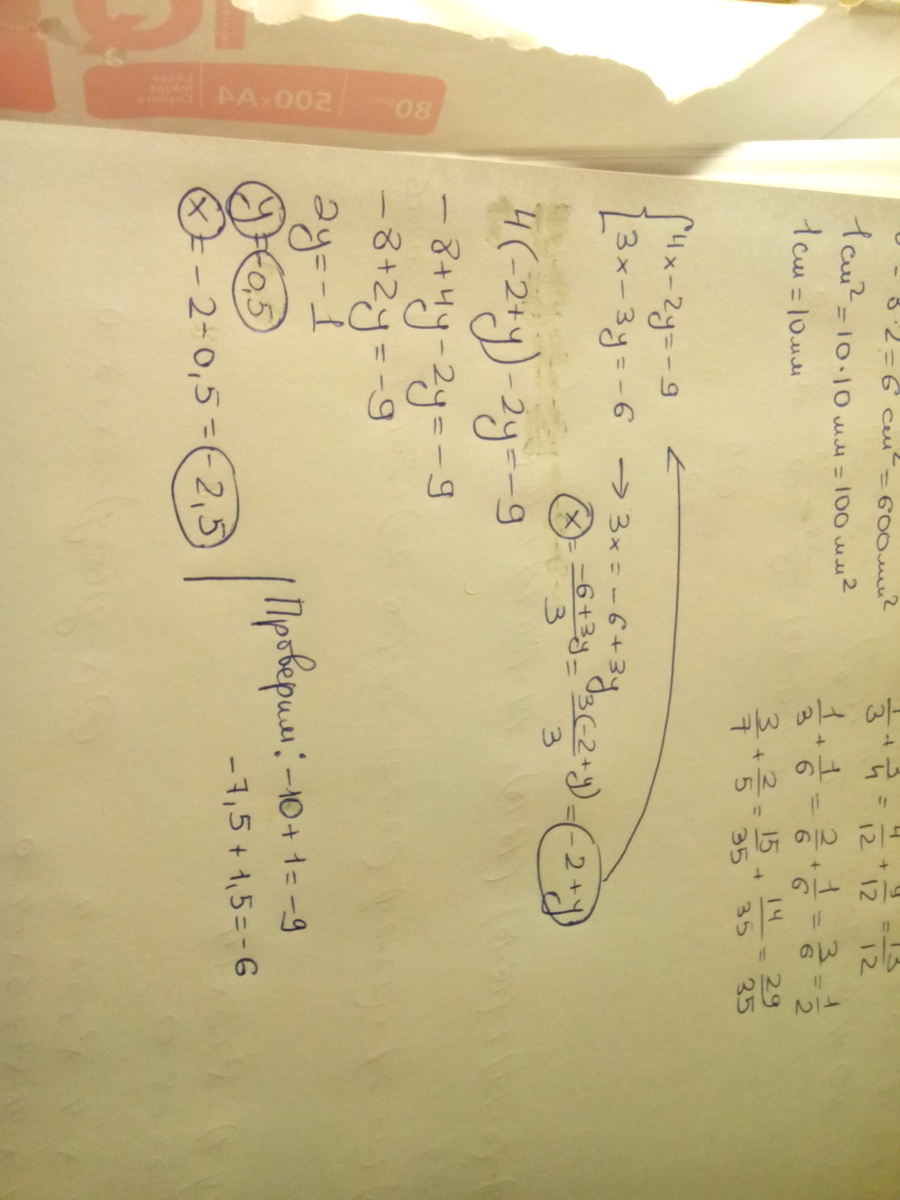 80
500×A4
Laser
Inkjet
Copiers
= 3·2 = 6 см² = 600мм²
1см² = 10·10 мм = 100мм²
1см = 10мм
1/3 + 3/4 = 4/12 + 9/12 = 13/12
1/3 + 1/6 = 2/6 + 1/6 = 3/6 = 1/2
3/7 + 2/5 = 15/35 + 14/35 = 29/35
{4x - 2y = -9
{3x - 3y = -6 → 3x = -6 + 3y
x = (-6 + 3y)/3 = 3(-2 + y)/3 = -2 + y
4(-2+y) - 2y = -9
-8 + 4y - 2y = -9
-8 + 2y = -9
2y = -1
y = -0,5
x = -2 - 0,5 = -2,5
Проверим: -10 + 1 = -9
-7,5 + 1,5 = -6